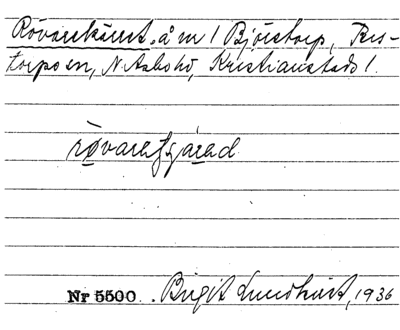 Rövarekärret, å m / Björstorp, Per-
torps sn, N. Åsbo hd, Kristianstads l.
rövaretjárad
Nr 5500. Birgit Lundkvist, 1936